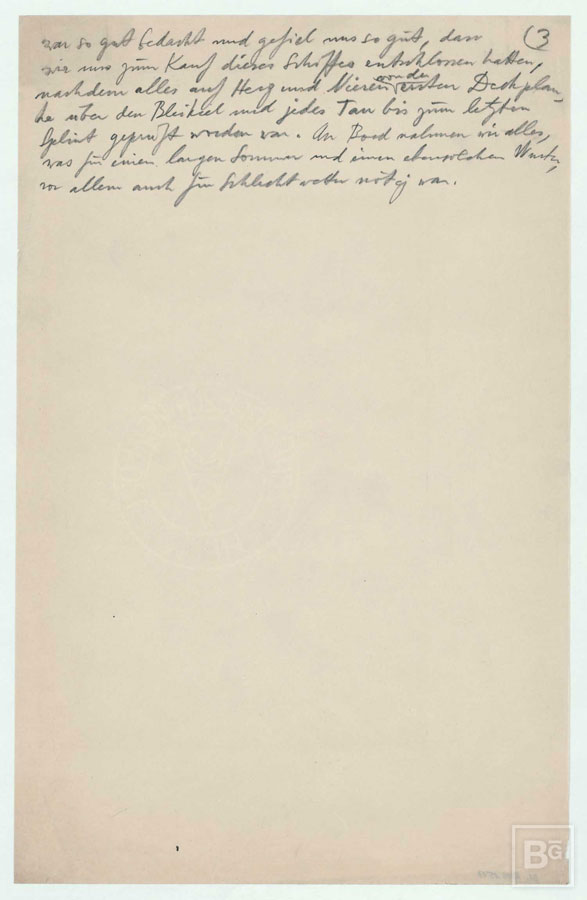 (3
war so gut bedacht und gefiel uns so gut, dass
wir uns zum Kauf dieses Schiffes entschlossen hatten,
nachdem alles auf Herz und Nieren von der ersten Deckplan-
ke über den Bleikiel und jedes Tau bis zum letzten
Splint geprüft worden war. An Bord nahmen wir alles,
was für einen langen Sommer und einen ebensolchen Winter,
vor allem auch für Schlechtwetter nötig war.
BG